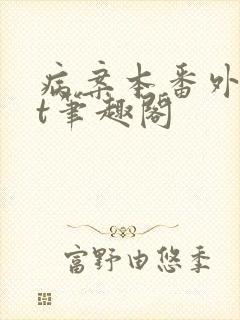 病案本番外
t笔趣阁
富野由悠季